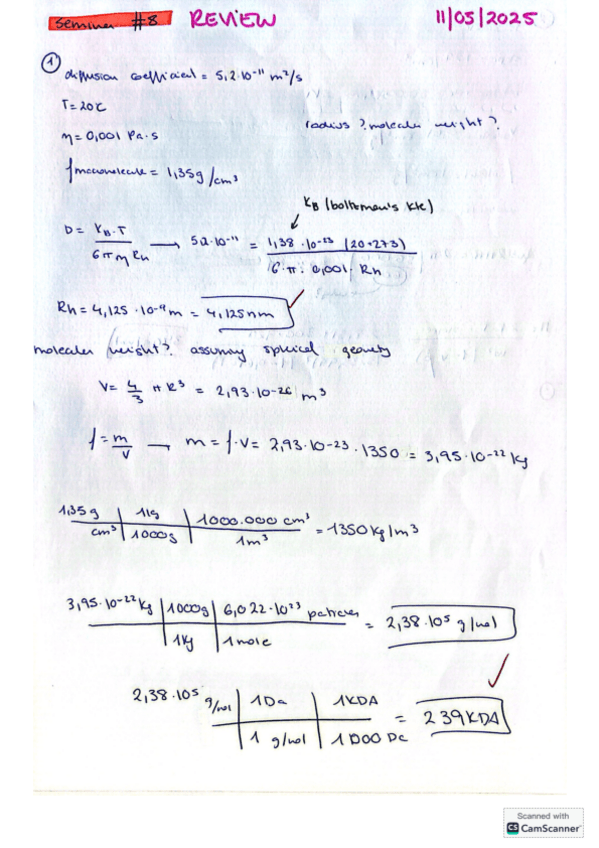 Seminar #8 REVIEW 11/05/2025
①
diffusion coefficient = 5,2·10⁻¹¹ m²/s
T=20C
radius? molecular weight?
η=0,001 Pa·s
ρmacromolecule = 1,35g/cm³
KB (boltzman's kte)
D = KB·T / 6πηRh → 5,2·10⁻¹¹ = 1,38·10⁻²³ (20+273) / 6·π·0,001·Rh
Rh = 4,125·10⁻⁹m = 4,125nm ✓
molecular weight? assuming spherical geometry
V= 4/3 π R³ = 2,93·10⁻²⁶ m³
ρ = m/V → m = ρ·V = 2,93·10⁻²³·1350 = 3,95·10⁻²² kg
1,35g | 1kg | 1000.000 cm³
cm³ | 1000g | 1m³ = 1350kg/m³
3,95·10⁻²² kg | 1000g | 6,022·10²³ particles
| 1kg | 1mole = 2,38·10⁵ g/mol
✓
2,38·10⁵ g/mol | 1Da | 1KDA
| 1 g/mol | 1000 Da = 239KDA
Scanned with
CS CamScanner